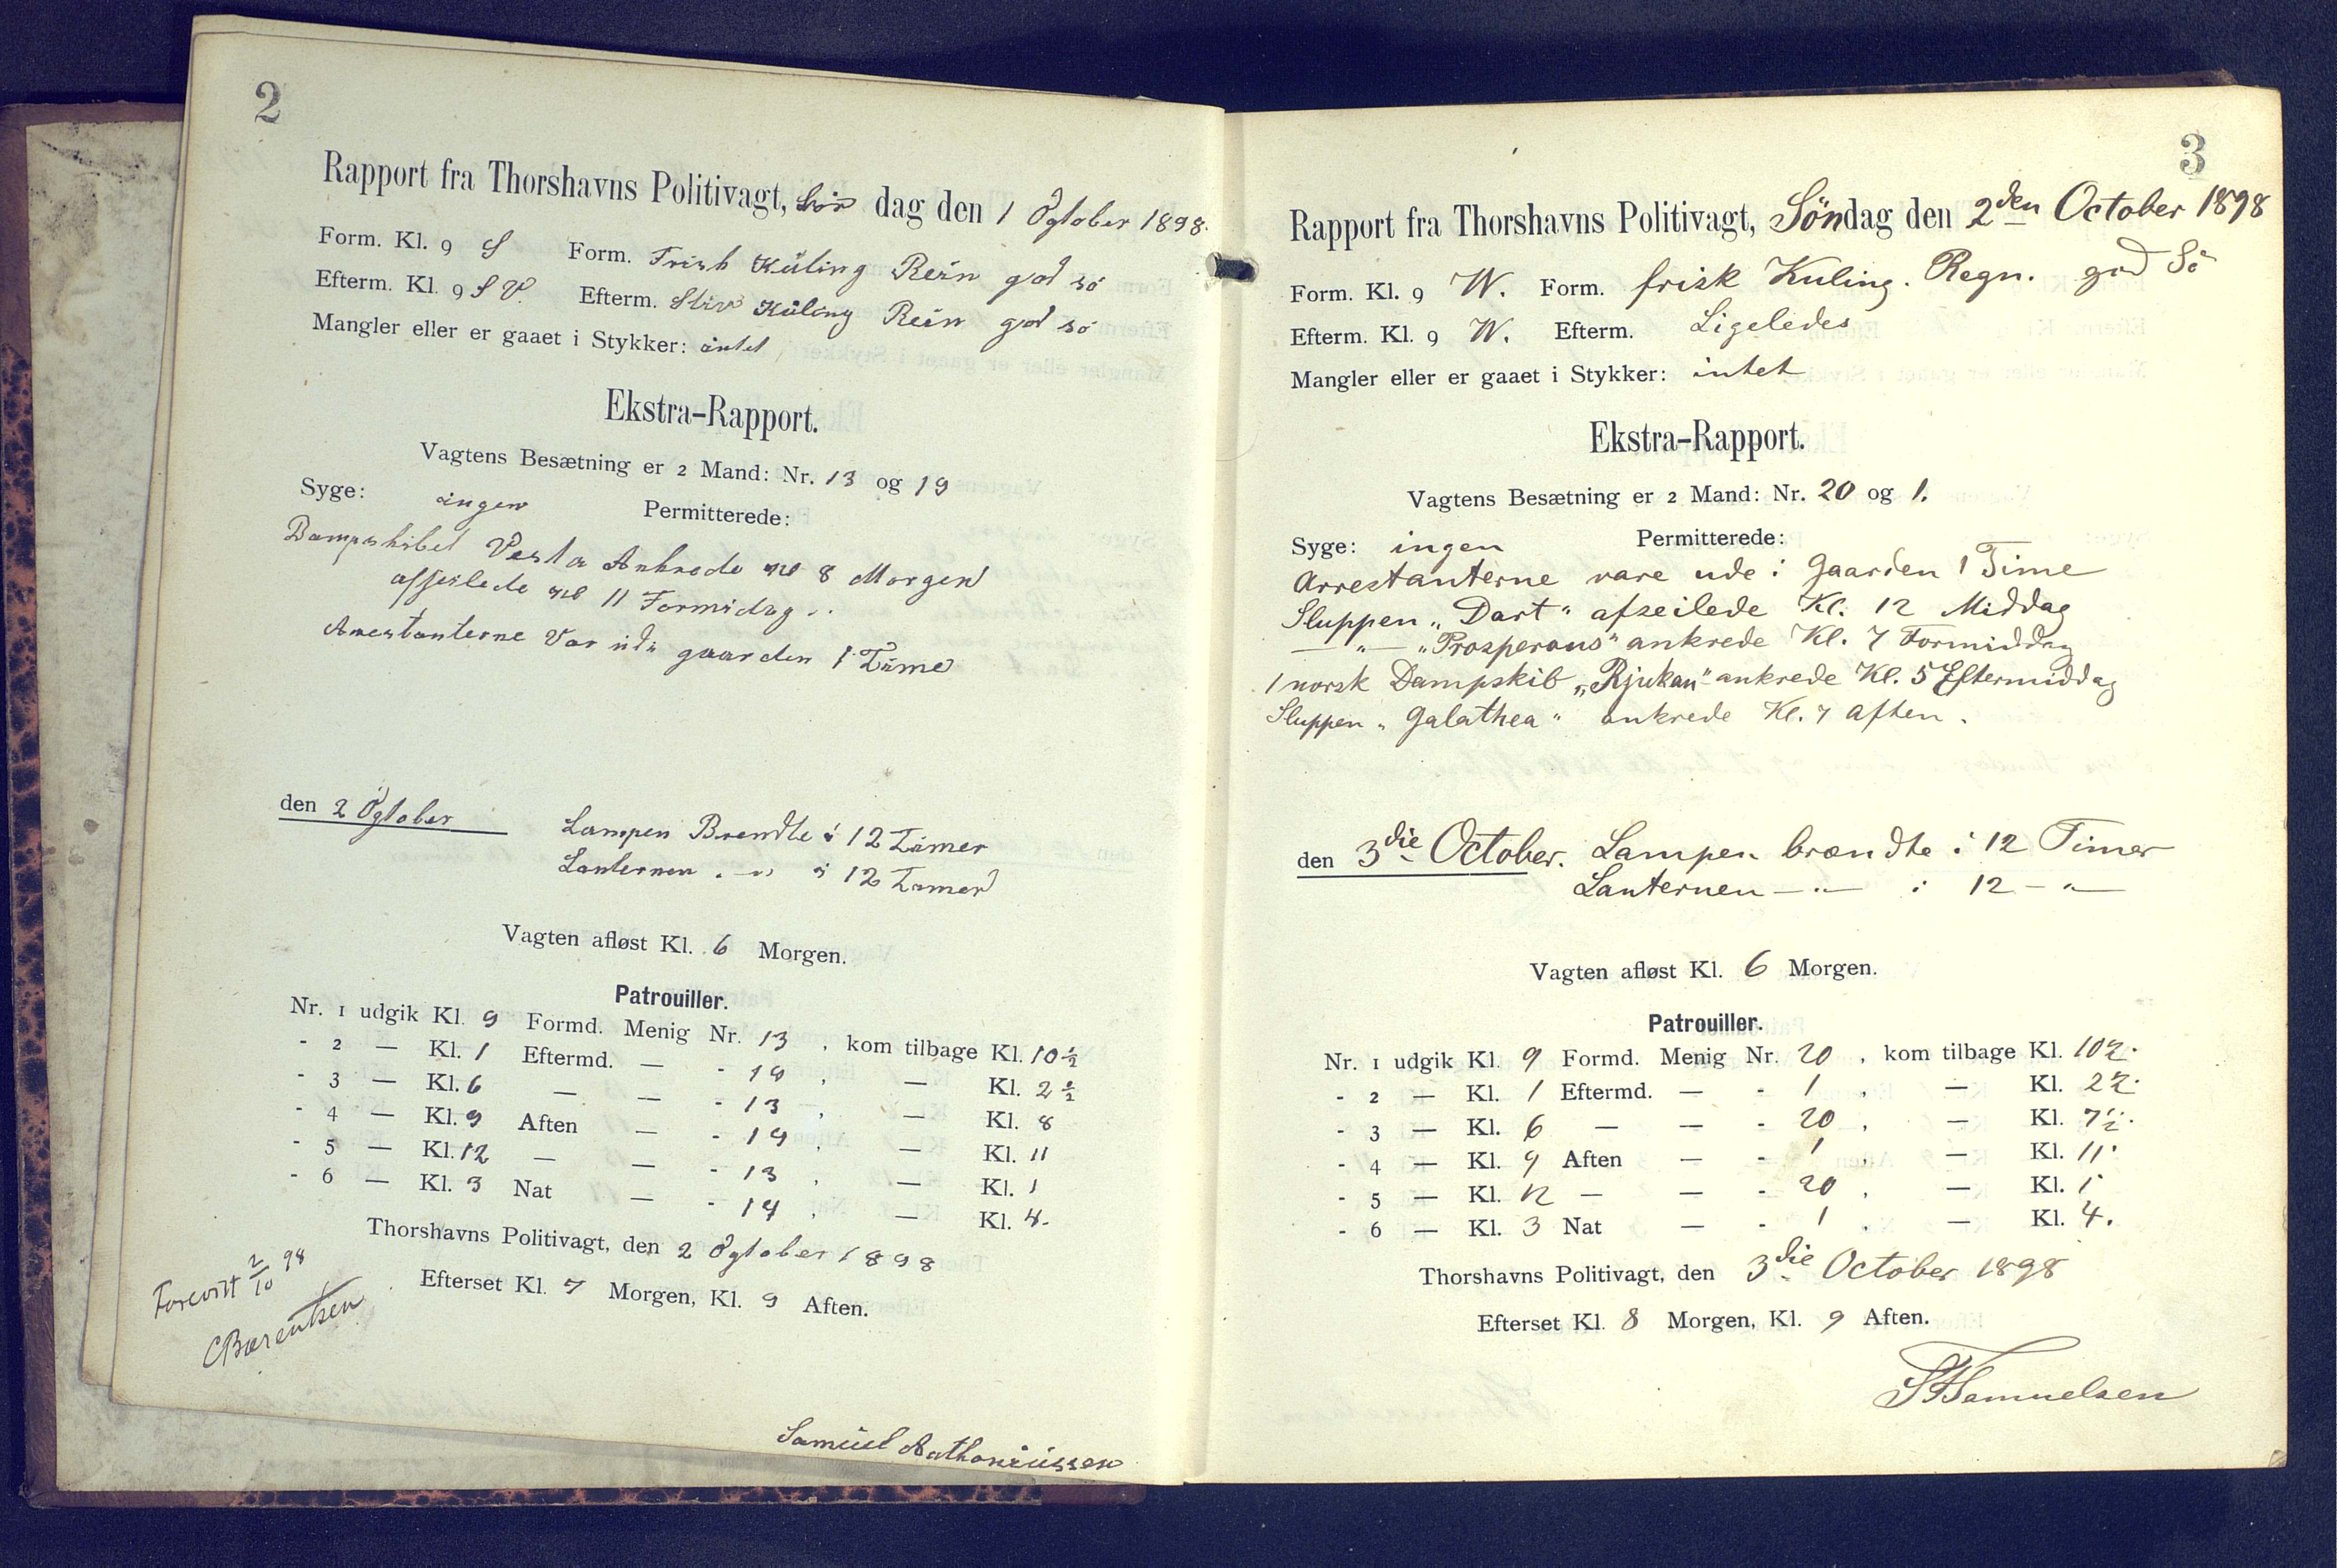 2
Rapport fra Thorshavns Politivagt, Lör dag den 1 Ogtober 1898.
Form. Kl. 9 S Form. Frish Küling Rein god sö
Efterm. Kl. 9 S V. Efterm. Stiv Küling Rein god sö
Mangler eller er gaaet i Stykker: intet
Ekstra-Rapport.
Vagtens Besætning er 2 Mand: Nr. 13 og 19
Syge: ingen Permitterede:
Dampskibet Vesta Ankrede 8 Morgen
afseilede 11 Formidag
Arrestanterne Var gaarden 1 Time
den 2 Ogtober Lampen Brendte i 12 Timer
Lanternen - " i 12 Timer
Vagten afløst Kl. 6 Morgen.
Patrouiller.
Nr. 1 udgik Kl. 9 Formd. Menig Nr. 13 , kom tilbage Kl. 10 ½
- 2 — Kl. 1 Eftermd. — - 19 , — Kl. 2 ½
- 3 — Kl. 6 — — - 13 , — Kl. 8
- 4 — Kl. 9 Aften — - 19 , — Kl. 11
- 5 — Kl. 12 — — - 13 , — Kl. 1
- 6 — Kl. 3 Nat — - 19 , — Kl. 4.
Thorshavns Politivagt, den 2 Ogtober 1898
Efterset Kl. 7 Morgen, Kl. 9 Aften.
Forevist 2/10 98
CBærentsen
Samuel Nathaniüssen
3
Rapport fra Thorshavns Politivagt, Söndag den 2den October 1898
Form. Kl. 9 W. Form. frisk Kuling. Regn. god Sö
Efterm. Kl. 9 W. Efterm. Ligeledes
Mangler eller er gaaet i Stykker: intet
Ekstra-Rapport.
Vagtens Besætning er 2 Mand: Nr. 20 og 1.
Syge: ingen Permitterede:
Arrestanterne vare ude i Gaarden 1 Time
Sluppen „Dart" afseilede Kl. 12 Middag
— " — „Prosperous" ankrede Kl. 7 Formiddag
1 norsk Dampskib „Rjukan" ankrede Kl. 5 Eftermiddag
Sluppen „Galathea" ankrede Kl. 7 Aften.
den 3die October. Lampen brændte i 12 Timer
Lanternen — " — i 12 - " —
Vagten afløst Kl. 6 Morgen.
Patrouiller.
Nr. 1 udgik Kl. 9 Formd. Menig Nr. 20 , kom tilbage Kl. 10½.
- 2 — Kl. 1 Eftermd. — - 1 , — Kl. 2½.
- 3 — Kl. 6 — — - 20 , — Kl. 7½.
- 4 — Kl. 9 Aften — - 1 , — Kl. 11.
- 5 — Kl. 12 — — - 20 , — Kl. 1
- 6 — Kl. 3 Nat — - 1 , — Kl. 4.
Thorshavns Politivagt, den 3die October 1898
Efterset Kl. 8 Morgen, Kl. 9 Aften.
Samuelsen